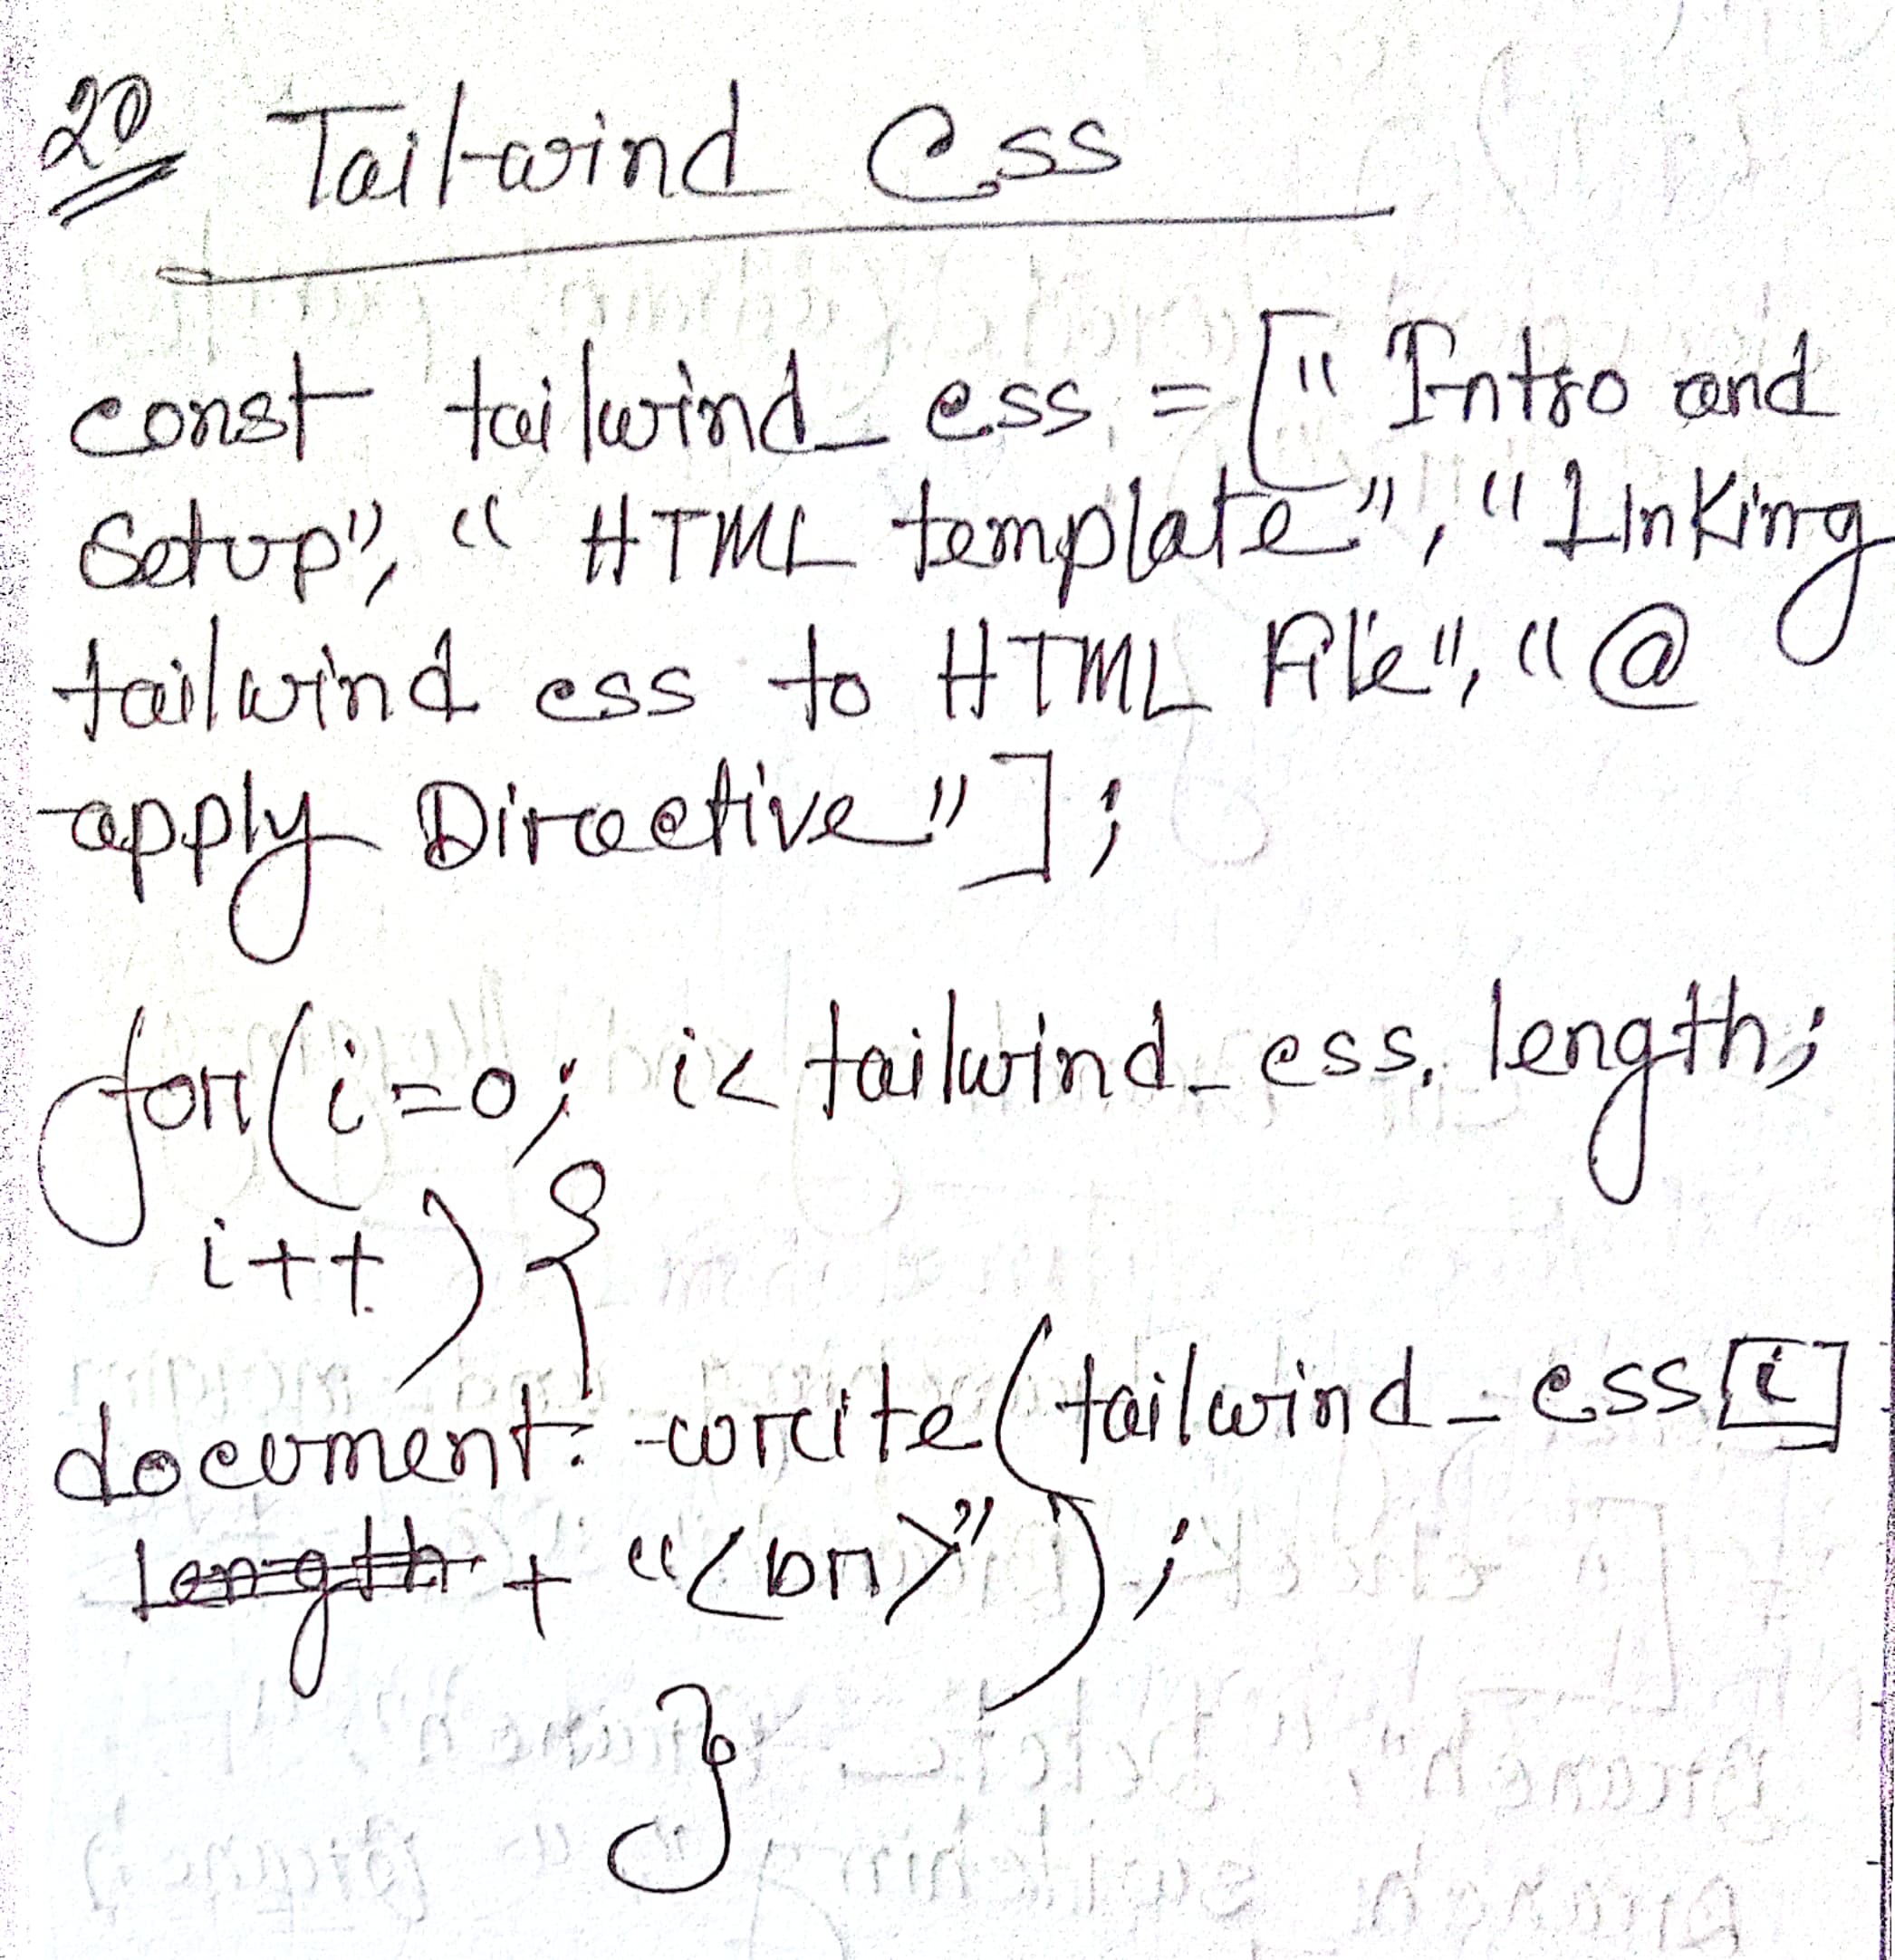 20 Tailwind Css
const tailwind_css = ["Intro and
Setup", "HTML template", "Linking
tailwind css to HTML File", "@
apply Directive"];
for(i=0; i< tailwind_css.length;
i++){
document.write(tailwind_css[i]
length + "<br>");
}